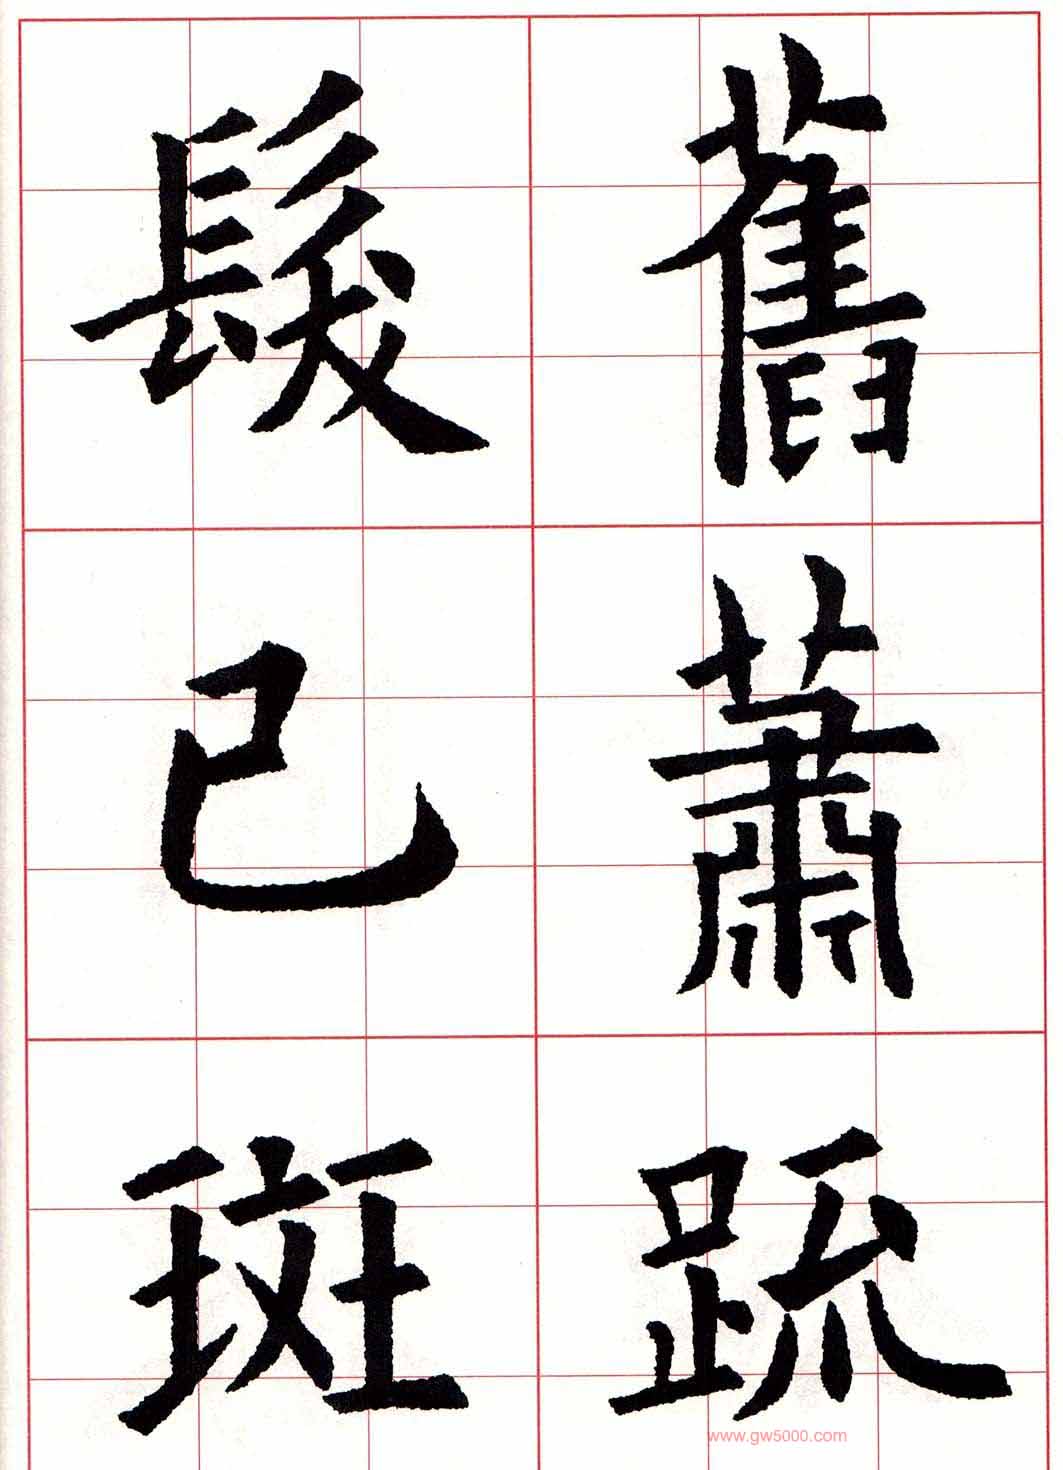 舊蕭疏
髮已斑
www.gw5000.com